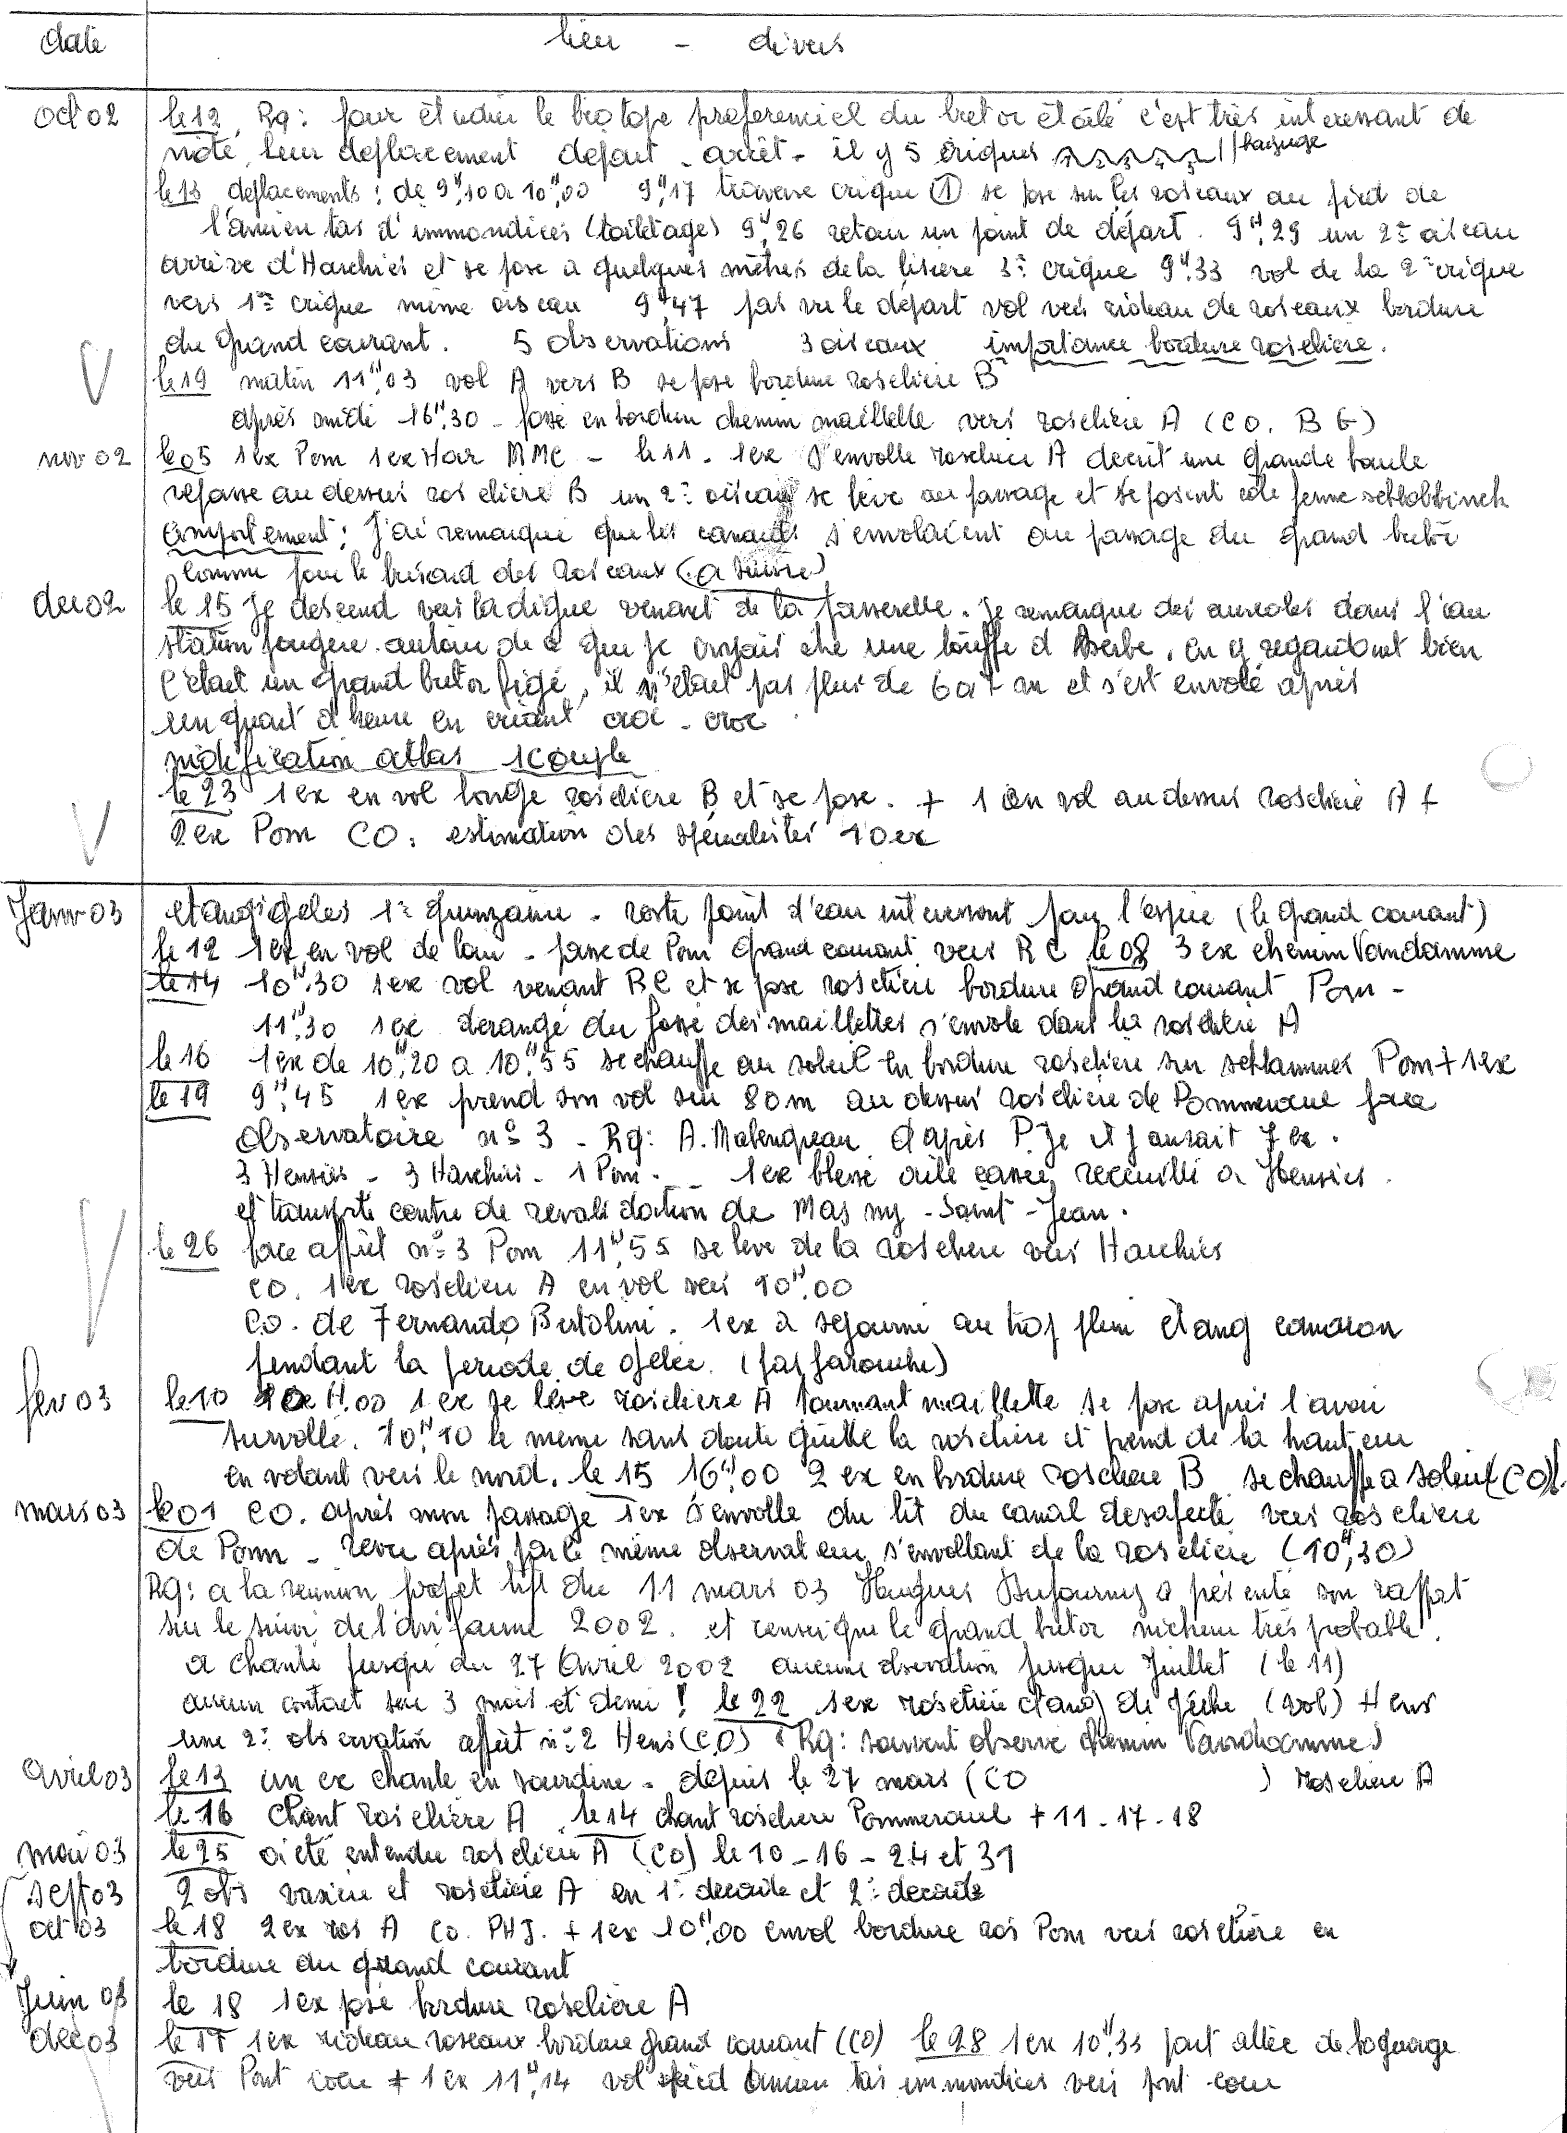 date lieu - divers
oct 02 le 12 Rq: pour étudier le biotope preferenciel du butor étoilé c'est très interessant de
noté leur deplacement depart - arrêt - il y 5 criques baguage
le 13 deplacements: de 9H,10 a 10H,00 9H17 traverse crique ① se pose sur les roseaux au pied de
l'ancien tas d'immondices (toiletage) 9H,26 retour un point de départ. 9H,29 un 2e oiseau
arrive d'Harchies et se pose a quelques mètres de la lisiere 3e crique 9H33 vol de la 2e crique
vers 1re crique même oiseau 9H47 pas vu le départ vol vers rideau de roseaux bordure
du grand courant. 5 observations 3 oiseaux importance bordure roseliere.
le 19 matin 11H,03 vol A vers B se pose bordure roseliere B
après midi 16H,30 - posé en bordure chemin maillette vers roseliere A (CO. B G)
nov 02 le 05 1ex Pom 1ex Har MMC - le 11 - 1ex s'envolle roseliere A decrit une grande boucle
repasse au dessus roseliere B un 2e oiseau se leve au passage et se posent coté ferme
comportement: J'ai remarqué que les canards s'envolaient au passage du grand butor
comme pour le busard des roseaux (a suivre)
dec 02 le 15 Je descend vers la digue venant de la passerelle. Je remarque des aureoles dans l'eau
station fougere autour de ce que je croyais etre une touffe d'herbe, en y regardant bien
c'etait un grand butor figé, il n'etait pas plus de 6 a 7 m et s'est envolé après
un quart d'heure en criant croc - croc
nidification atlas 1 couple
le 23 1ex en vol longe roseliere B et se pose. + 1 en vol au dessus roseliere A +
2ex Pom CO: estimation des spécialistes 10ex
Janv 03 etangs gelés 1e quinzaine - reste point d'eau interessant pour l'espece (le grand courant)
le 12 1ex en vol de - Pom grand courant vers RC le 08 3 ex chemin Vandamme
le 14 10H,30 1ex vol venant RC et se pose roseliere bordure grand courant Pom -
11H,30 1ex derangé du fossé des maillettes s'envole dans la roseliere A
le 16 1ex de 10H,20 a 10H,55 se chauffe au soleil en bordure roseliere sur schlammes Pom + 1ex
le 19 9H,45 1ex prend son vol sur 80m au dessus roseliere de Pommeroeul face
observatoire n° 3 - Rq: A. Malengreau d'après P.Je il y aurait 7 ex.
3 Hensies - 3 Harchies - 1 Pom. - 1ex blessé aile cassée, recueilli a Hensies
et transporte centre de revalidation de Masnuy - Saint - Jean.
le 26 face affût n° 3 Pom 11H,55 se leve de la roseliere vers Harchies
CO. 1ex roseliere A en vol vers 10H,00
CO. de Fernando Bertolini. 1ex a sejourné au trop plein etang
pendant la periode de gelée. (pas farouche)
fev 03 le 10 10 H,00 1 ex se leve roseliere A tournant maillette se pose après l'avoir
survollé. 10H,10 le meme sans doute quitte la roseliere et prend de la hauteur
en volant vers le nord. le 15 16H,00 2 ex en bordure roseliere B se chauffe a soleil (CO).
mars 03 le 01 CO. après mon passage 1ex s'envolle du lit du canal desafecté vers roseliere
de Pom - revu après par le même observateur s'envollant de la roseliere (10H,30)
Rq: a la reunion projet life du 11 mars 03 Hugues Dufourny a présenté son rapport
sur le suivi de l'avifaune 2002. et renseigne le grand butor nicheur très probable.
a chanté jusqu'au 27 Avril 2002 aucune observation jusque Juillet (le 11)
aucun contact sur 3 mois et demi! le 22 1ex roseliere etang de pêche (vol) Hens
une 2e observation affût n° 2 Hens (CO) (Rq: souvent observé chemin Vandamme)
avril 03 le 13 un ex chante en sourdine - depuis le 27 mars (CO ) roseliere A
le 16 chant roselière A, le 14 chant roseliere Pommeroeul + 11 - 17 - 18
mai 03 le 25 a été entendu roseliere A (CO) le 10 - 16 - 24 et 31
sept 03 2 obs vasiere et roseliere A en 1e decade et 2e decade
oct 03 le 18 2ex ros A CO. PHJ. + 1ex 10H,00 envol bordure ros Pom vers roselière en
bordure du grand courant
Juin 03 le 18 1ex posé bordure roselière A
dec 03 le 17 1ex rideau roseaux bordure grand courant (CO) le 28 1ex 10H,33 part allée de baguage
vers Pont + 1ex 11H,14 vol pied ancien tas immondices vers pont